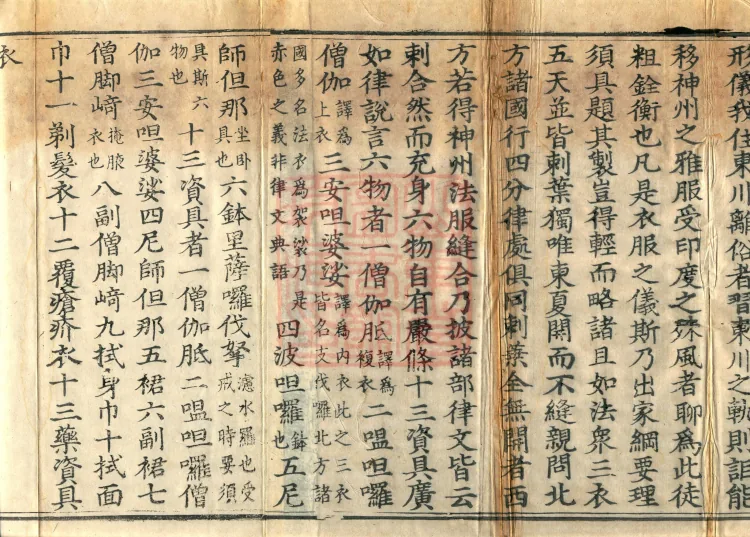 形儀我住東川離俗者習東川之軌則詎能
移神州之雅服受印度之殊風者聊為此徒
粗銓衡也凡是衣服之儀斯乃出家綱要理
須具題其製豈得輕而略諸且如法衆三衣
五天並皆刺葉獨唯東夏開而不縫親問北
方諸國行四分律處俱同刺葉全無開者西
方若得神州法服縫合乃披諸部律文皆云
刺合然而充身六物自有嚴條十三資具廣
如律說言六物者一僧伽胝譯為複衣二嗢呾囉
僧伽譯為上衣三安呾婆娑譯為內衣此之三衣皆名支伐囉北方諸
國多名法衣為袈裟乃是赤色之義非律文典語四波呾囉鉢也五尼
師但那坐卧具也六鉢里薩囉伐拏濾水羅也受戒之時要須
具斯六物也十三資具者一僧伽胝二嗢呾囉僧
伽三安呾婆娑四尼師但那五裙六副裙七
僧脚崎掩腋衣也八副僧脚崎九拭身巾十拭面
巾十一剃髮衣十二覆瘡疥衣十三藥資具
衣